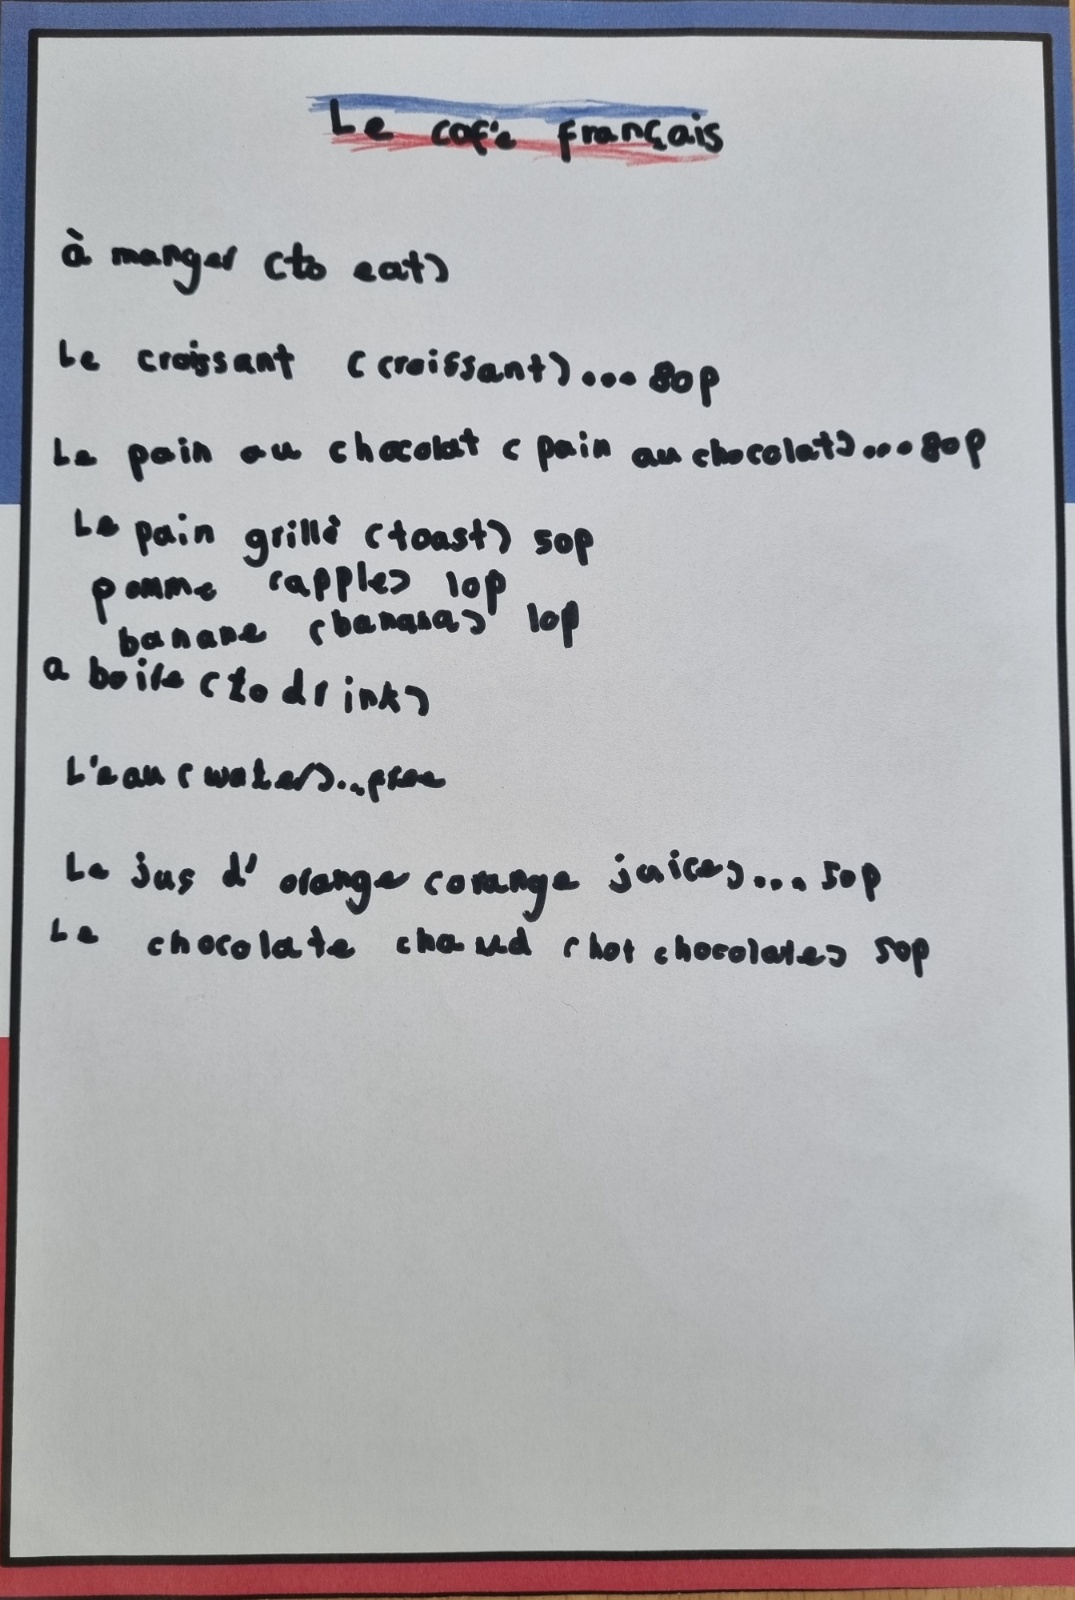 Le café français
à manger (to eat)
Le croissant (croissant)... 80p
Le pain au chocolat (pain au chocolat)... 80p
Le pain grillé (toast) 50p
pomme (apple) 10p
banane (banana) 10p
a boire (to drink)
L'eau (water)... free
Le jus d'orange (orange juice)... 50p
Le chocolate chaud (hot chocolate) 50p